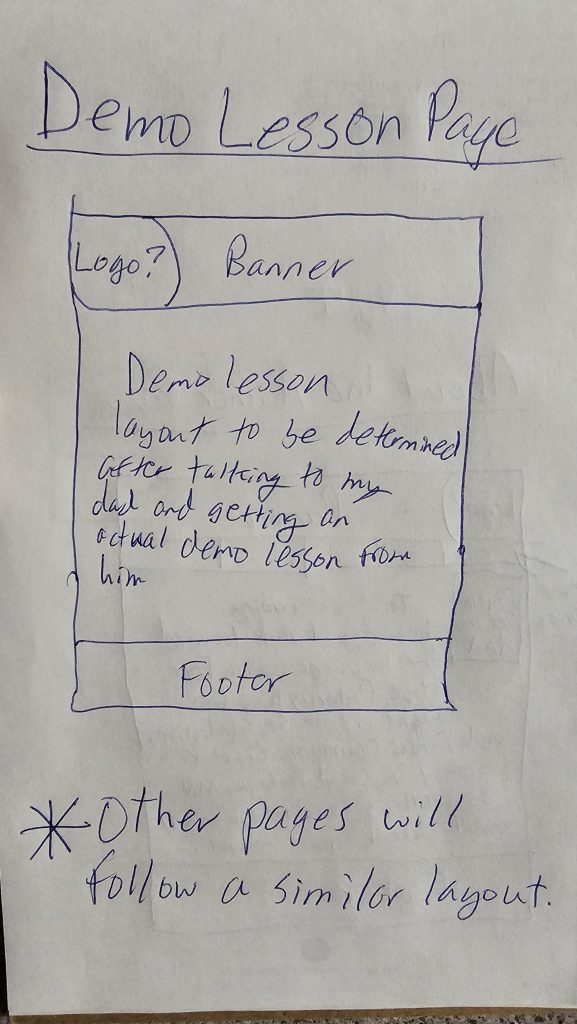 Demo Lesson Page
Logo? Banner
Demo lesson
layout to be determined
after talking to my
dad and getting an
actual demo lesson from
him
Footer
* Other pages will
follow a similar layout.